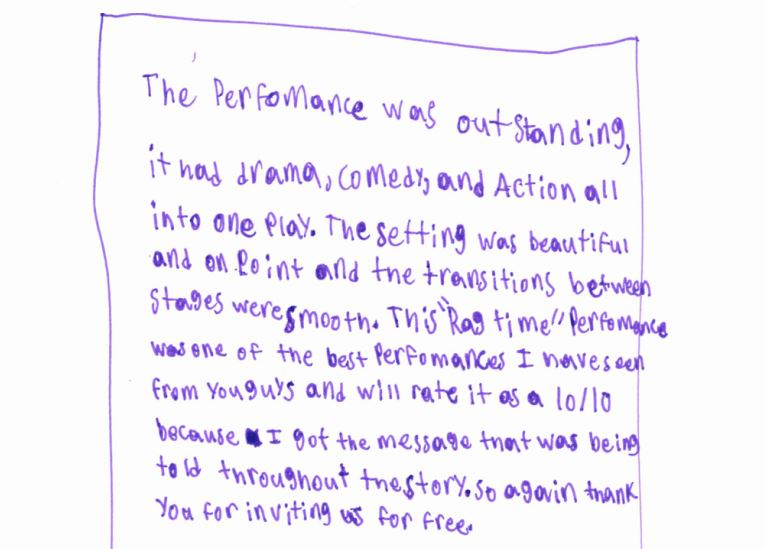 The Perfomance was outstanding,
it had drama, comedy, and Action all
into one Play. The setting was beautiful
and on Point and the transitions between
stages were smooth. This "Rag time" Perfomance
was one of the best Perfomances I have seen
from you guys and will rate it as a 10/10
because I got the message that was being
told throughout the story. so again thank
You for inviting us for free.